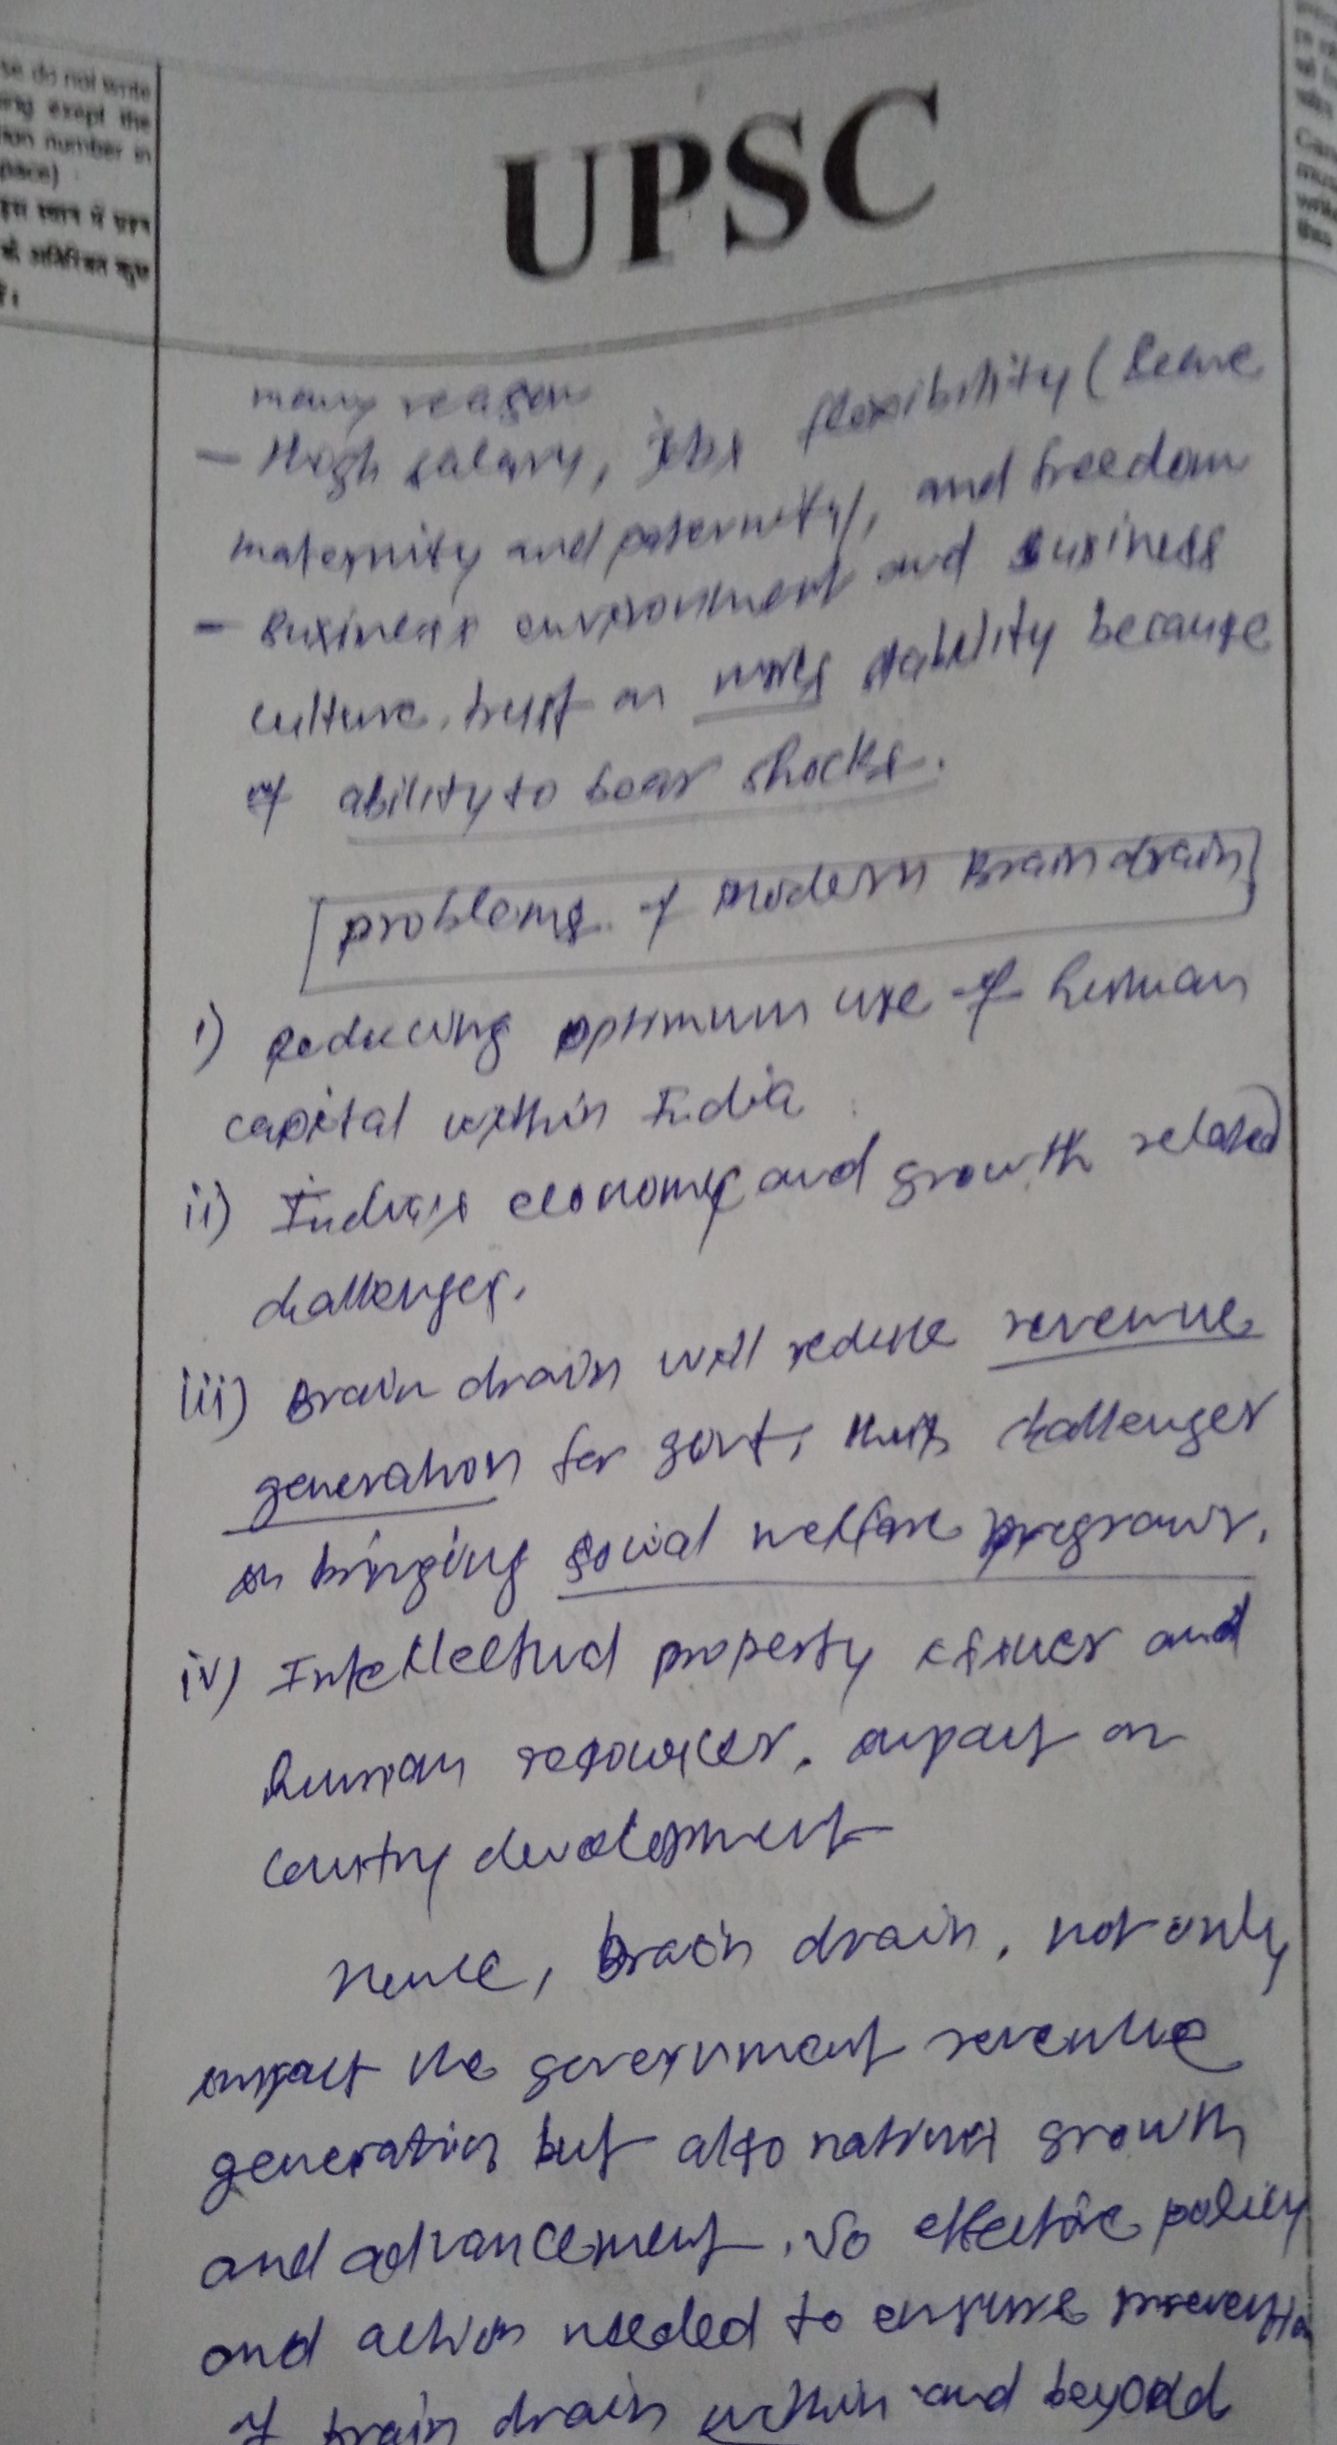 se do not write
ing exept the
tion number in
pace)
इस स्थान में प्रश्न
के अतिरिक्त कुछ
UPSC
many reason
- High salary, jobs flexibility (leave
maternity and paternity), and freedom
- Business environment and business
culture. trust on stability because
of ability to bear shocks.
problems of modern Brain drain
i) Reducing optimum use of human
capital within India
ii) India's economy and growth related
challenges.
iii) Brain drain will reduce revenue
generation for govt, thus challenges
on bringing social welfare programs.
iv) Intellectual property issues and
human resources. impact on
country development
Hence, brain drain, not only
impact the government revenue
generation but also nation's growth
and advancement. So effective policy
and action needed to ensure prevention
of brain drain within and beyond